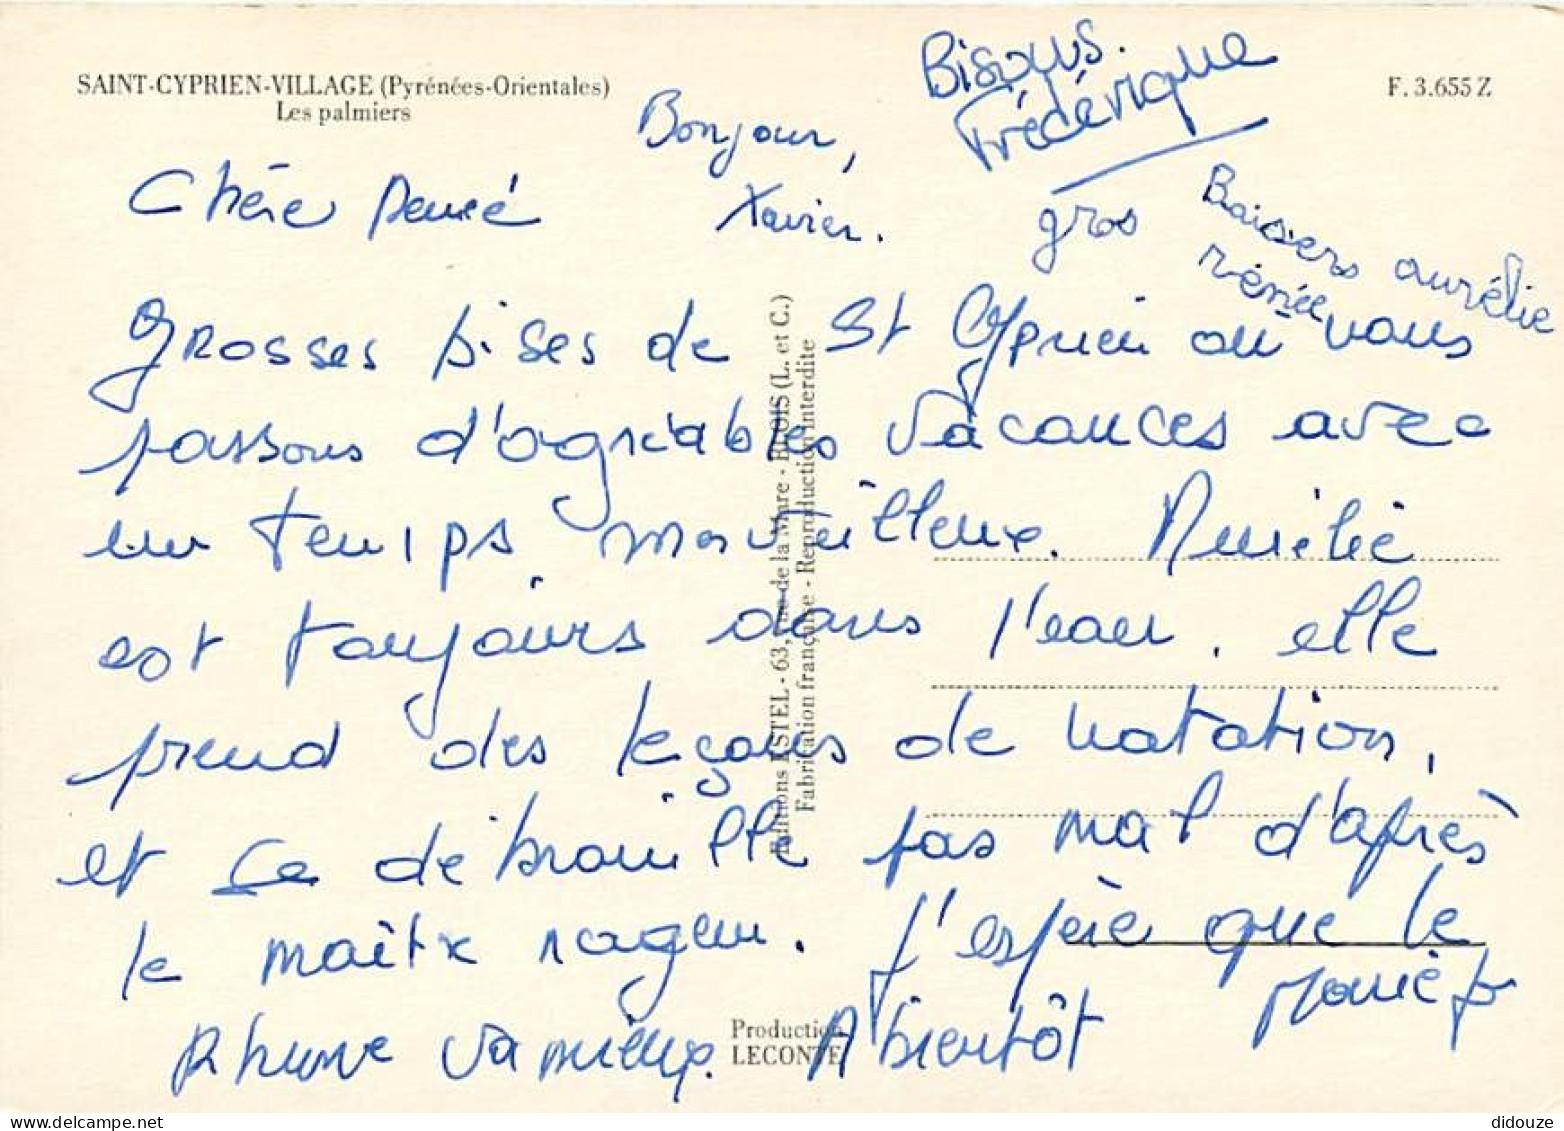 SAINT-CYPRIEN-VILLAGE (Pyrénées-Orientales)
Les palmiers
F. 3.655 Z
Bisous.
Frédérique
Bonjour,
Xavier.
gros Baisers aurélie
rénée
Chère Renée
Grosses bises de St Cyprien où nous
passons d'agréables vacances avec
un temps merveilleux. Aurélie
est toujours dans l'eau. elle
prend des leçons de natation,
et se débrouille pas mal d'après
le maître nageur. J'espère que le
rhume va mieux. A bientôt
Editions ESTEL - 63, rue de la Mare - BLOIS (L. et C.)
Fabrication française - Reproduction interdite
Production
LECONTE
didouze